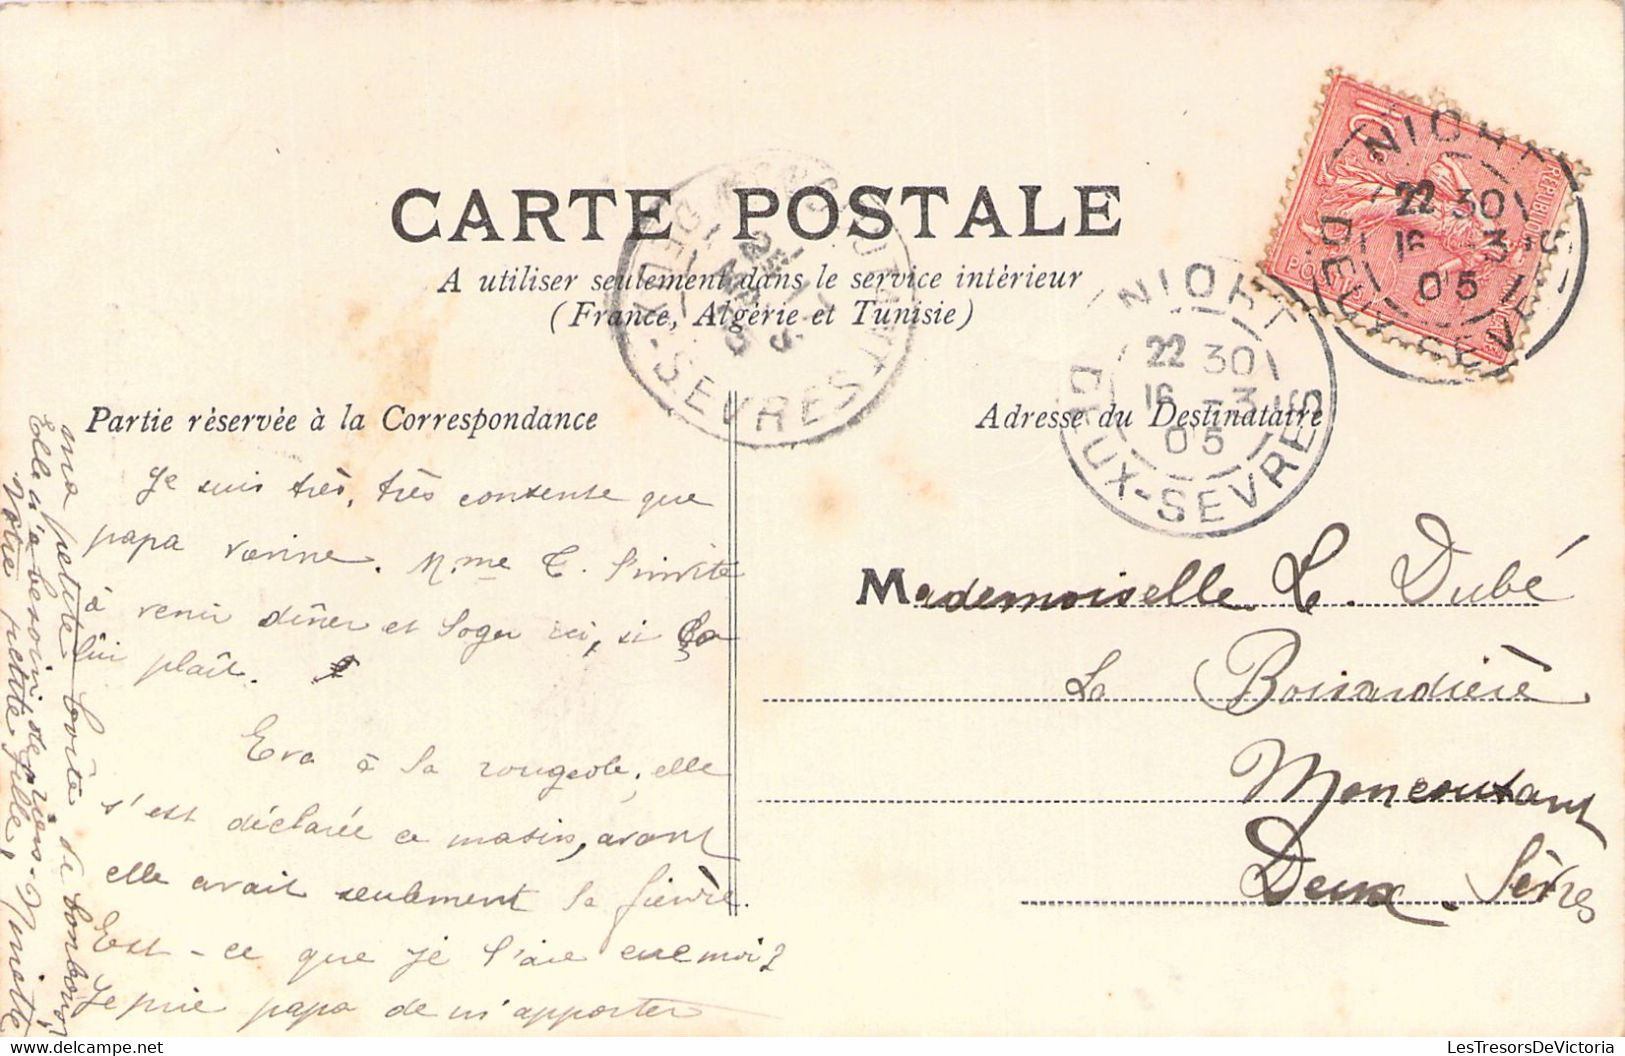 CARTE POSTALE
A utiliser seulement dans le service intérieur
(France, Algérie et Tunisie)
NIORT
DEUX-SEVRES
22 30
16 -3
05
NIORT
DEUX-SEVRES
22 30
16 -3
05
REPUBLIQUE
POSTES
10
DEUX-SEVRES
Partie réservée à la Correspondance
Adresse du Destinataire
Je suis très, très contente que
papa vienne. Mme C. l'invite
à venir dîner et loger ici, si ça
lui plaît.
Eva à la rougeole, elle
s'est déclarée ce matin, avant
elle avait seulement la fièvre.
Est-ce que je l'aie eue moi?
Je prie papa de m'apporter
ma petite boîte de bonbons,
Elle n'a besoin de rien.
Votre petite fille, Ninette
Mademoiselle L. Dubé
La Boisardière
Moncoutant
Deux-Sèvres
LesTresorsDeVictoria